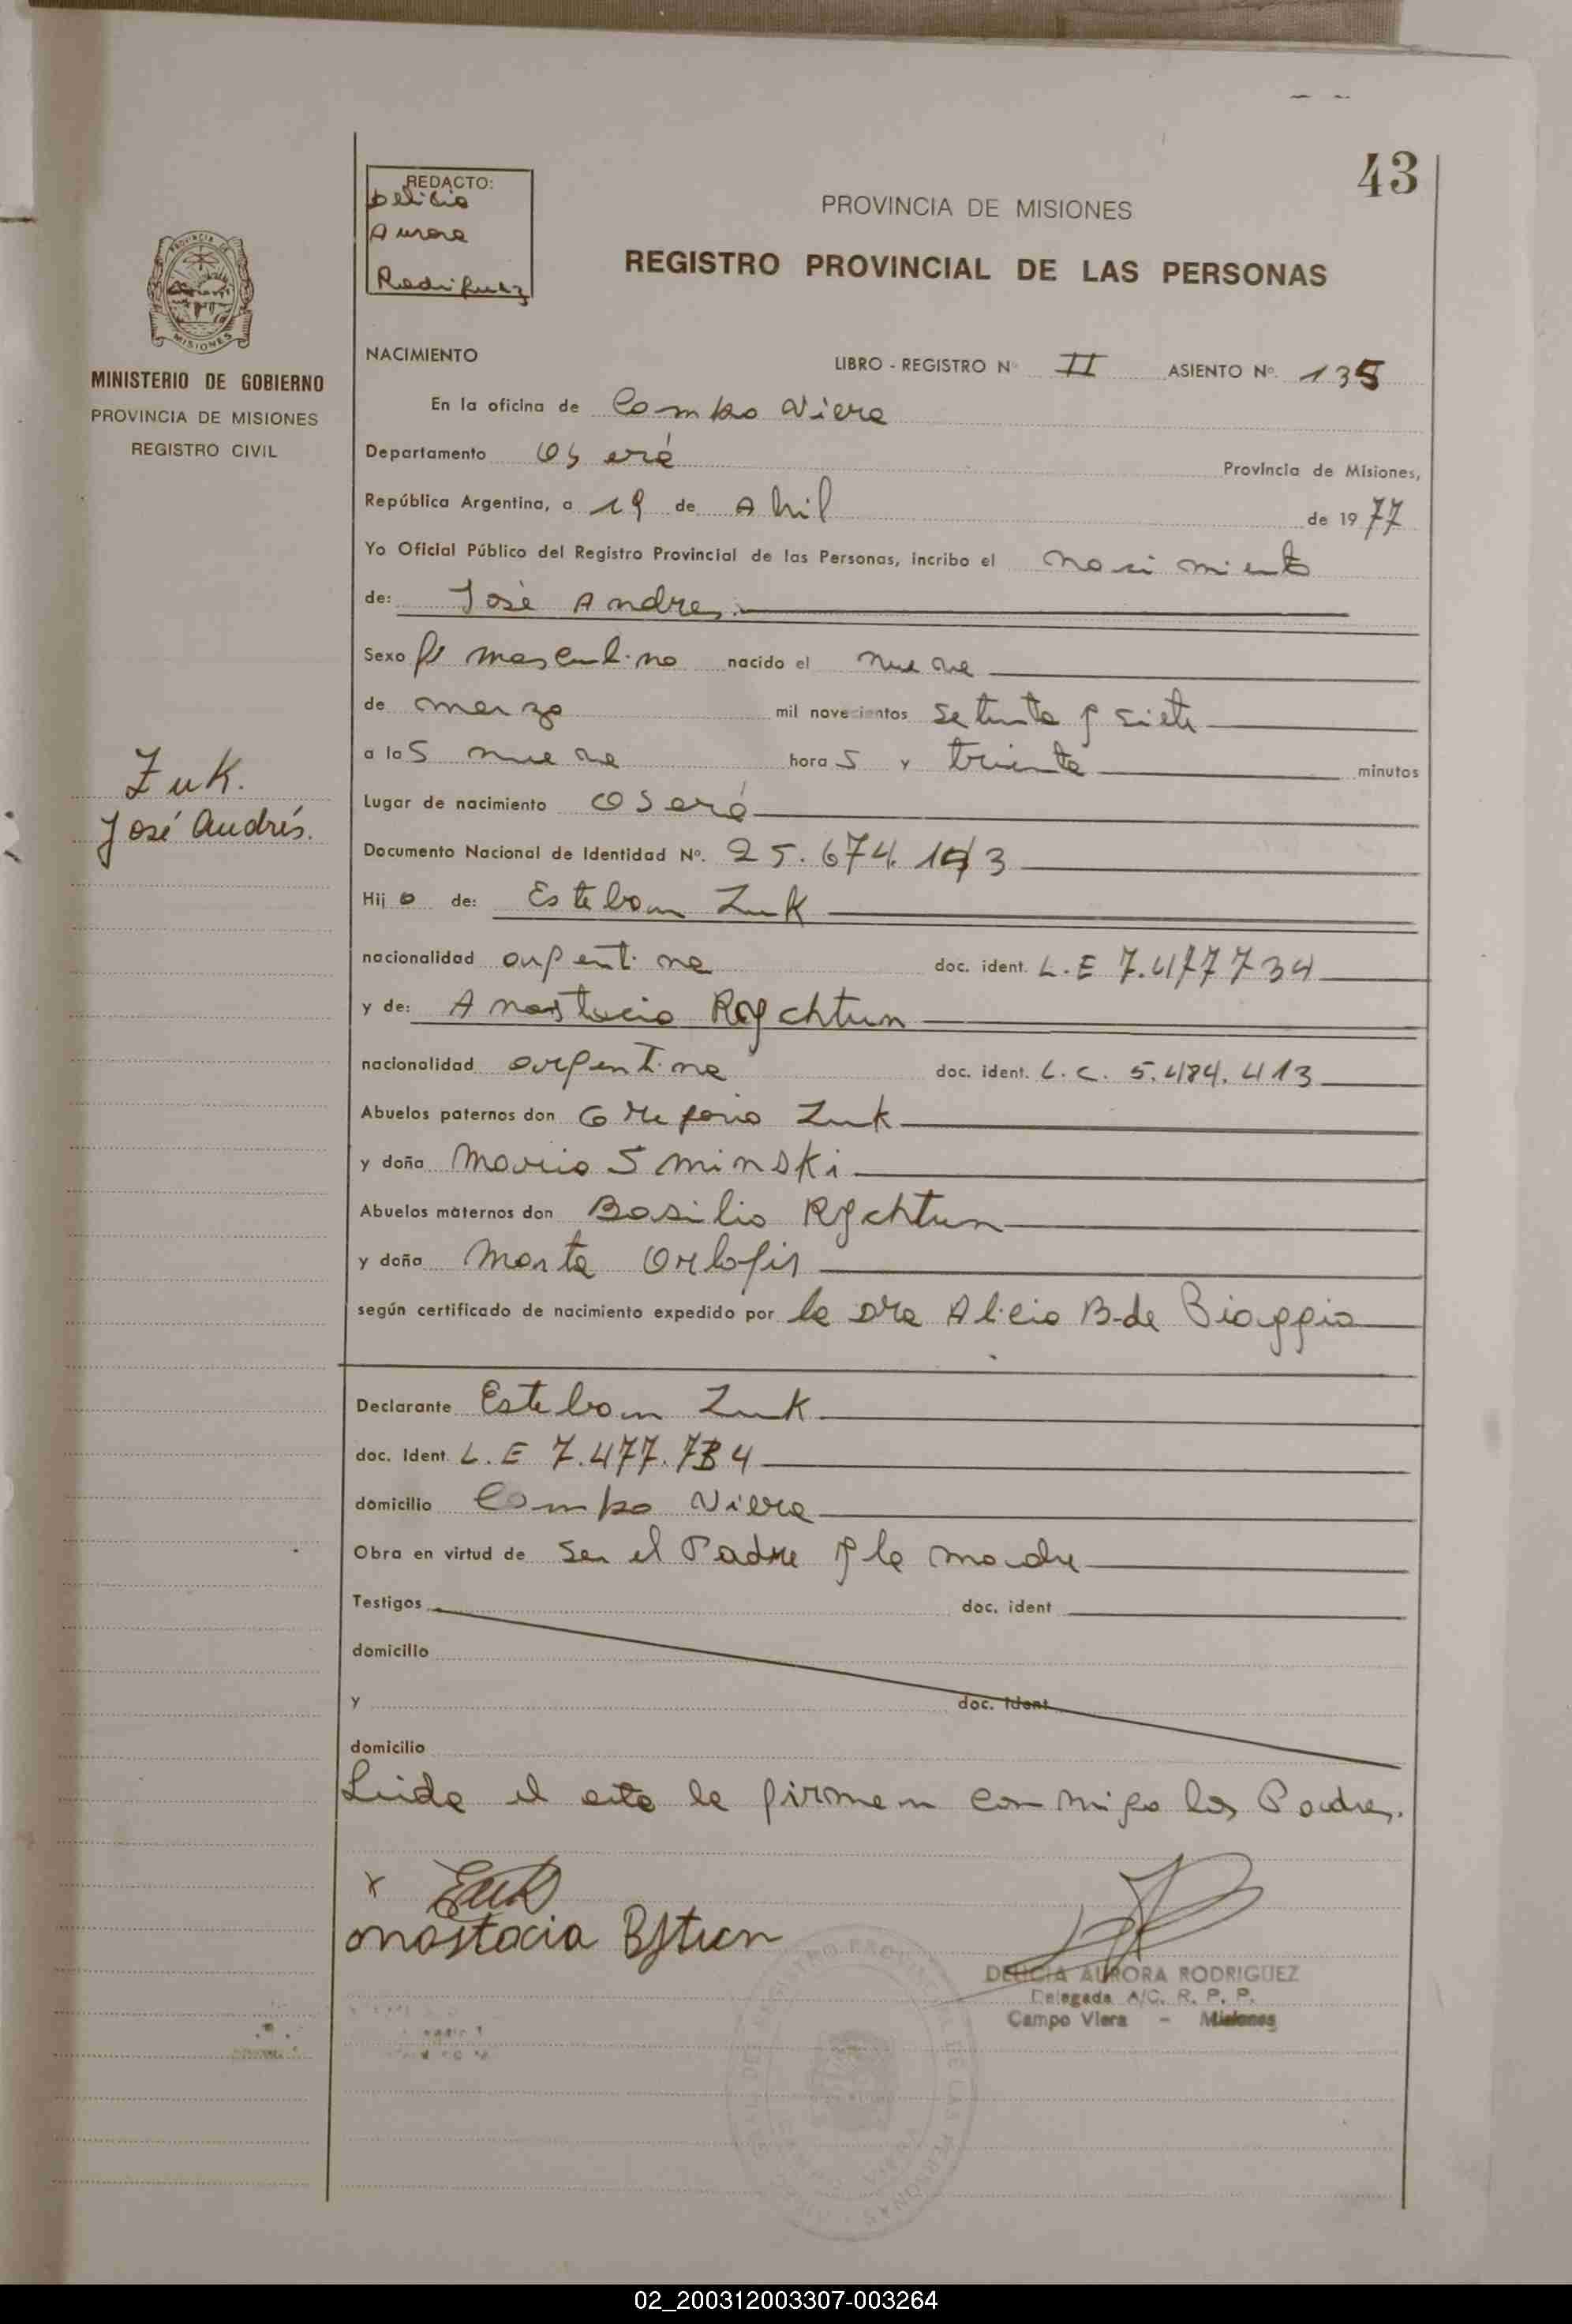 43
REDACTO:
Delicia
Aurora
Rodriguez
PROVINCIA DE MISIONES
REGISTRO PROVINCIAL DE LAS PERSONAS
PROVINCIA DE MISIONES
MINISTERIO DE GOBIERNO
PROVINCIA DE MISIONES
REGISTRO CIVIL
NACIMIENTO LIBRO - REGISTRO Nº II ASIENTO Nº. 135
En la oficina de Campo Viera
Departamento Oberá Provincia de Misiones,
República Argentina, a 19 de Abril de 1977
Yo Oficial Público del Registro Provincial de las Personas, incribo el nacimiento
de: José Andres.
Sexo masculino nacido el nueve
de marzo mil novecientos setenta y siete
a las nueve horas y treinta minutos
Zuk.
José Andrés.
Lugar de nacimiento Oberá
Documento Nacional de Identidad Nº. 25.674.193
Hijo de: Esteban Zuk
nacionalidad argentina doc. ident. L.E 7.477734
y de: Anastacia Rychtun
nacionalidad argentina doc. ident. L.C. 5.484.413
Abuelos paternos don Gregorio Zuk
y doña Maria Sminski
Abuelos maternos don Basilio Rychtun
y doña Marta
según certificado de nacimiento expedido por la Dra Alicia B-de Biaggio
Declarante Esteban Zuk
doc. Ident. L.E 7.477.734
domicilio Campo Viera
Obra en virtud de ser el Padre y la madre
Testigos doc. ident
domicilio
y doc. ident
domicilio
Leida el acta la firman conmigo los Padres.
x Zuk
anastacia
DELICIA AURORA RODRIGUEZ
Delegada A/C. R. P. P.
Campo Viera - Misiones
02_200312003307-003264